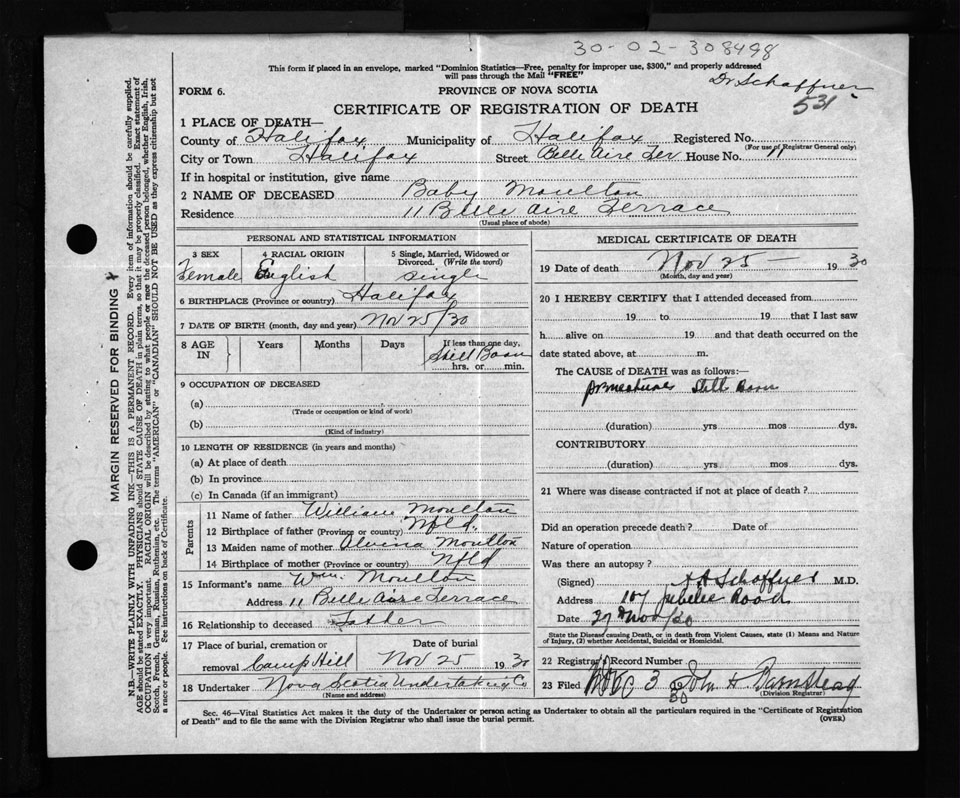 30-02-308498
This form if placed in an envelope, marked "Dominion Statistics—Free, penalty for improper use, $300," and properly addressed
will pass through the Mail "FREE"
Dr Schaffner
531
FORM 6.
PROVINCE OF NOVA SCOTIA
CERTIFICATE OF REGISTRATION OF DEATH
1 PLACE OF DEATH—
County of Halifax Municipality of Halifax Registered No.
(For use of Registrar General only)
City or Town Halifax Street Belle Aire Ter House No. 11
If in hospital or institution, give name
2 NAME OF DECEASED Baby Moulton
Residence 11 Belle Aire Terrace
(Usual place of abode)
PERSONAL AND STATISTICAL INFORMATION
3 SEX 4 RACIAL ORIGIN 5 Single, Married, Widowed or Divorced. (Write the word)
Female English Single
6 BIRTHPLACE (Province or country) Halifax
7 DATE OF BIRTH (month, day and year) Nov 25/30
8 AGE IN Years Months Days If less than one day,
Still Born
hrs. or min.
9 OCCUPATION OF DECEASED
(a)
(Trade or occupation or kind of work)
(b)
(Kind of industry)
10 LENGTH OF RESIDENCE (in years and months)
(a) At place of death
(b) In province
(c) In Canada (if an immigrant)
Parents
11 Name of father William Moulton
12 Birthplace of father (Province or country) Nfld.
13 Maiden name of mother Moulton
14 Birthplace of mother (Province or country) Nfld
15 Informant's name Wm. Moulton
Address 11 Belle Aire Terrace
16 Relationship to deceased Father
17 Place of burial, cremation or removal Camp Hill Date of burial Nov 25 1930
18 Undertaker Nova Scotia Undertaking Co
(Name and address)
MEDICAL CERTIFICATE OF DEATH
19 Date of death Nov 25 — 1930
(Month, day and year)
20 I HEREBY CERTIFY that I attended deceased from
19 to 19 that I last saw
h alive on 19 and that death occurred on the
date stated above, at m.
The CAUSE of DEATH was as follows:—
Still Born
(duration) yrs mos dys.
CONTRIBUTORY
(duration) yrs mos dys.
21 Where was disease contracted if not at place of death?
Did an operation precede death? Date of
Nature of operation
Was there an autopsy?
(Signed) Schaffner M.D.
Address 107 Jubilee Road
Date 27 Nov/30
State the Disease causing Death, or in death from Violent Causes, state (1) Means and Nature
of Injury, (2) whether Accidental, Suicidal or Homicidal.
22 Registrar Record Number
23 Filed Dec 3 30 John H Barnstead
(Division Registrar)
Sec. 46—Vital Statistics Act makes it the duty of the Undertaker or person acting as Undertaker to obtain all the particulars required in the "Certificate of Registration
of Death" and to file the same with the Division Registrar who shall issue the burial permit.
(OVER)
MARGIN RESERVED FOR BINDING
N.B.—WRITE PLAINLY WITH UNFADING INK—THIS IS A PERMANENT RECORD. Every item of information should be carefully supplied.
AGE should be stated EXACTLY. PHYSICIANS should STATE CAUSE OF DEATH in plain terms, so that it may be properly classified. Exact statement of
OCCUPATION is very important. RACIAL ORIGIN will be described by stating to what people or race the deceased person belonged, whether English, Irish,
Scotch, French, German, Russian, Ruthenian, etc. The terms "AMERICAN" or "CANADIAN" SHOULD NOT BE USED as they express citizenship but not
a race or people. See instructions on back of Certificate.